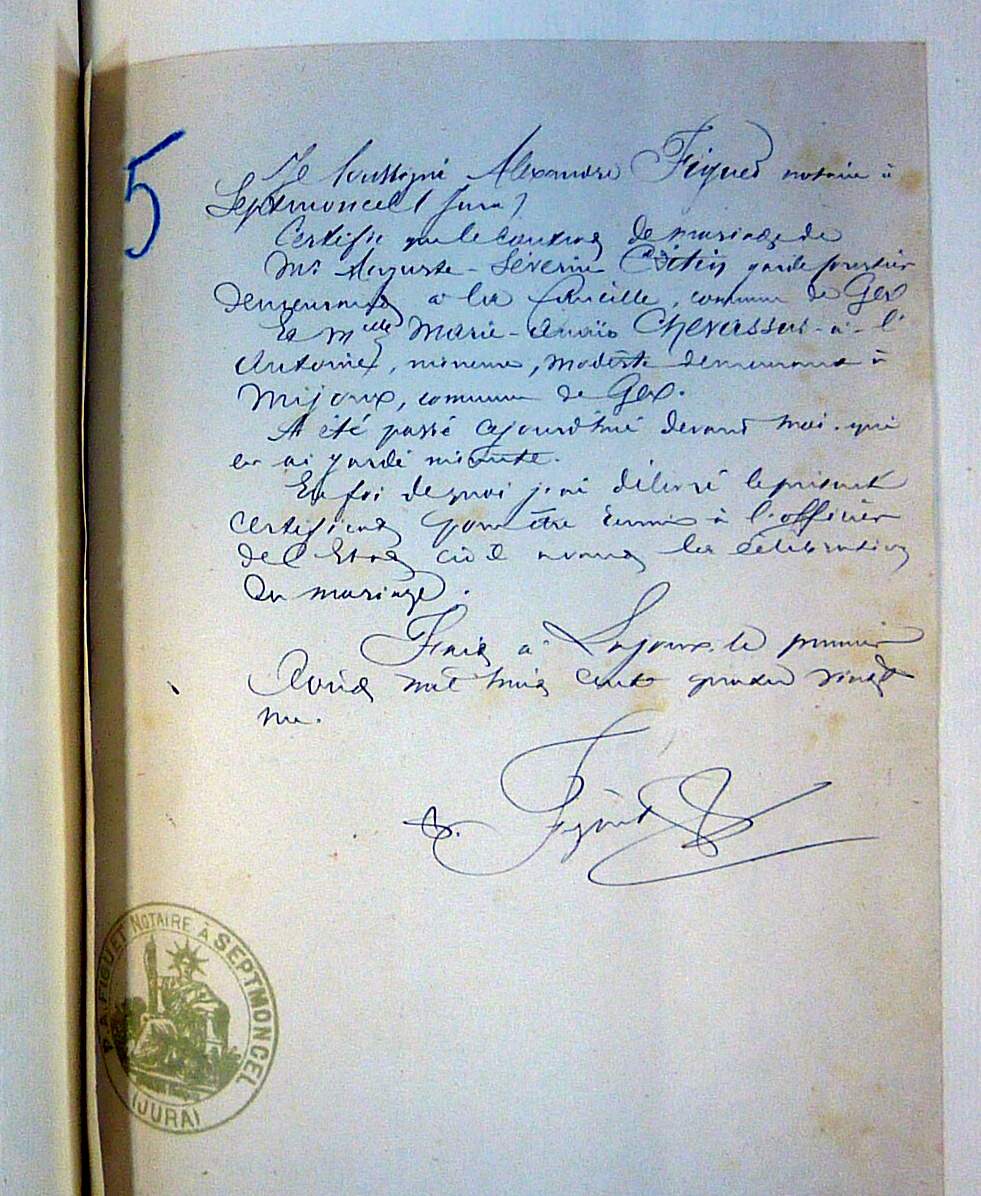 5
Je soussigné Alexandre Figuet notaire à
Septmoncel (Jura)
Certifie que le contrat de mariage de
Mr Auguste-Séverin garde forestier
demeurant à la Faucille, commune de Gex
Et Melle Marie-Anaïs Chevassus-à-l'
Antoine, mineure, modiste demeurant à
Mijoux, commune de Gex.
A été passé aujourd'hui devant moi qui
en ai gardé minute.
En foi de quoi j'ai délivré le présent
certificat pour être remis à l'officier
de l'Etat civil avant la célébration
du mariage.
Fait à Lajoux, le premier
Août mil huit cent quatre vingt
un.
Figuet
P. A. FIGUET NOTAIRE À SEPTMONCEL
(JURA)